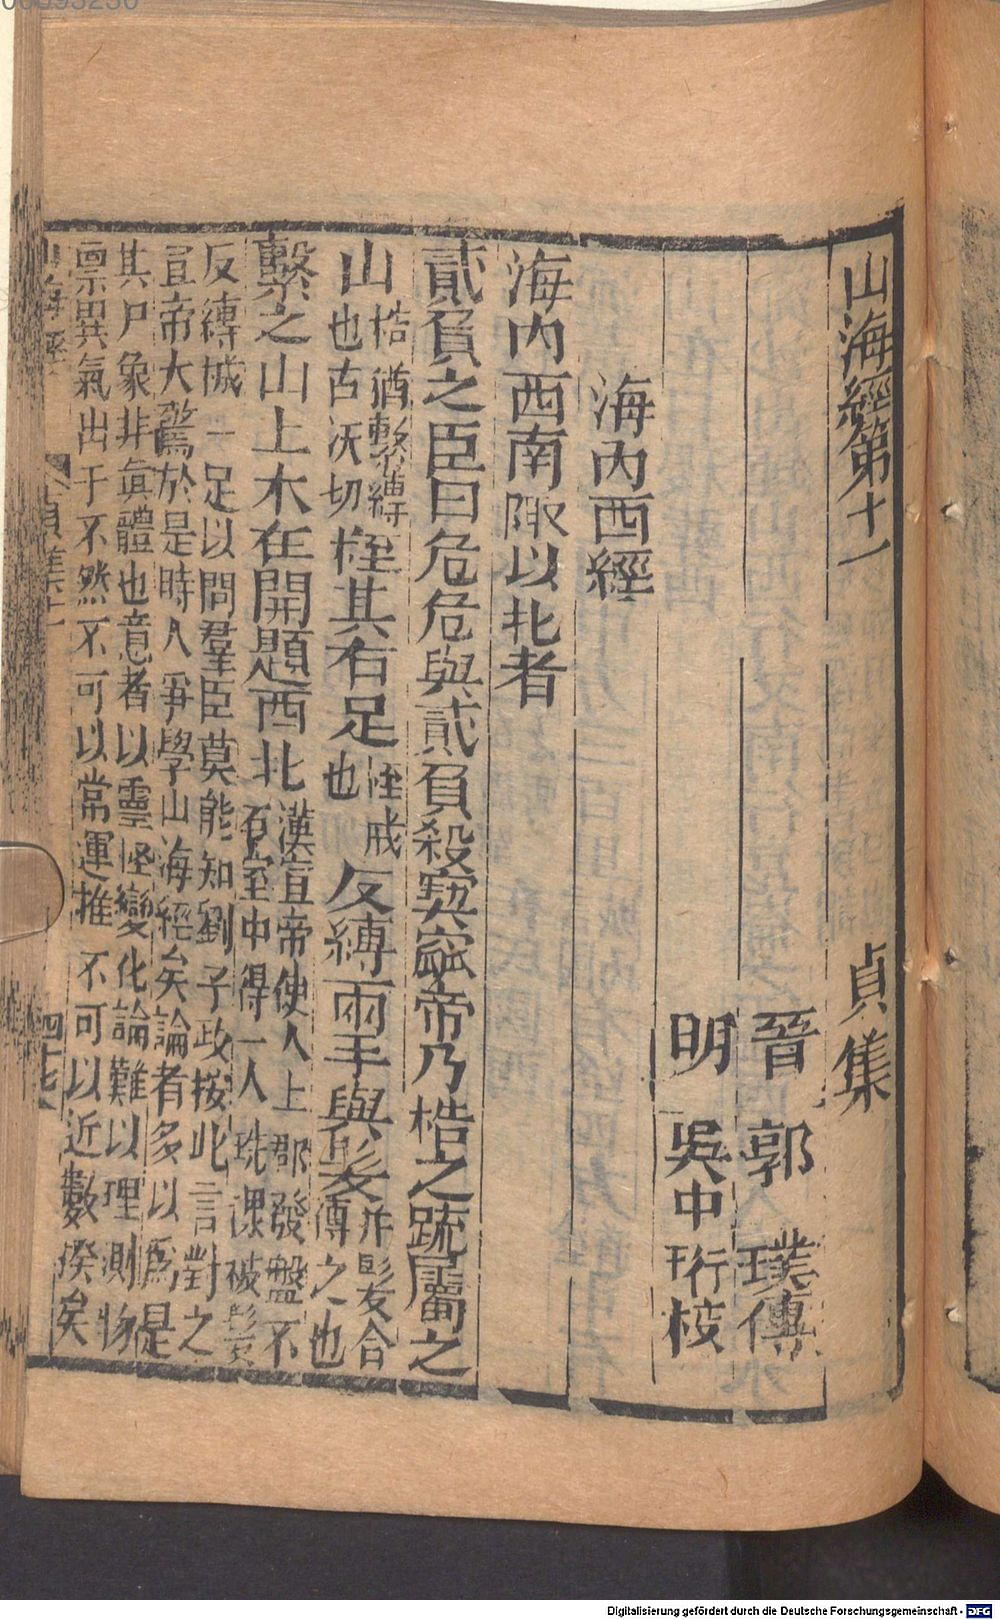 山海經第十一　貞集
晉　郭　璞傳
明　吳中　刊行校
海內西經
海內西南陬以北者
貳負之臣曰危危與貳負殺窫窳帝乃梏之疏屬之
山梏猶繫縛也古沃切桎其右足桎戒也反縛兩手與髮并髮合縛之也
繫之山上木在開題西北漢宣帝使人上郡發盤石石室中得一人跣踝被髮
反縛械一足以問羣臣莫能知劉子政按此言對之
宣帝大驚於是時人爭學山海經矣論者多以爲是
其尸象非眞體也意者以靈怪變化論難以理測物
禀異氣出于不然不可以常運推不可以近數揆矣
山海經
貞集十一
四七
Digitalisierung gefördert durch die Deutsche Forschungsgemeinschaft - DFG